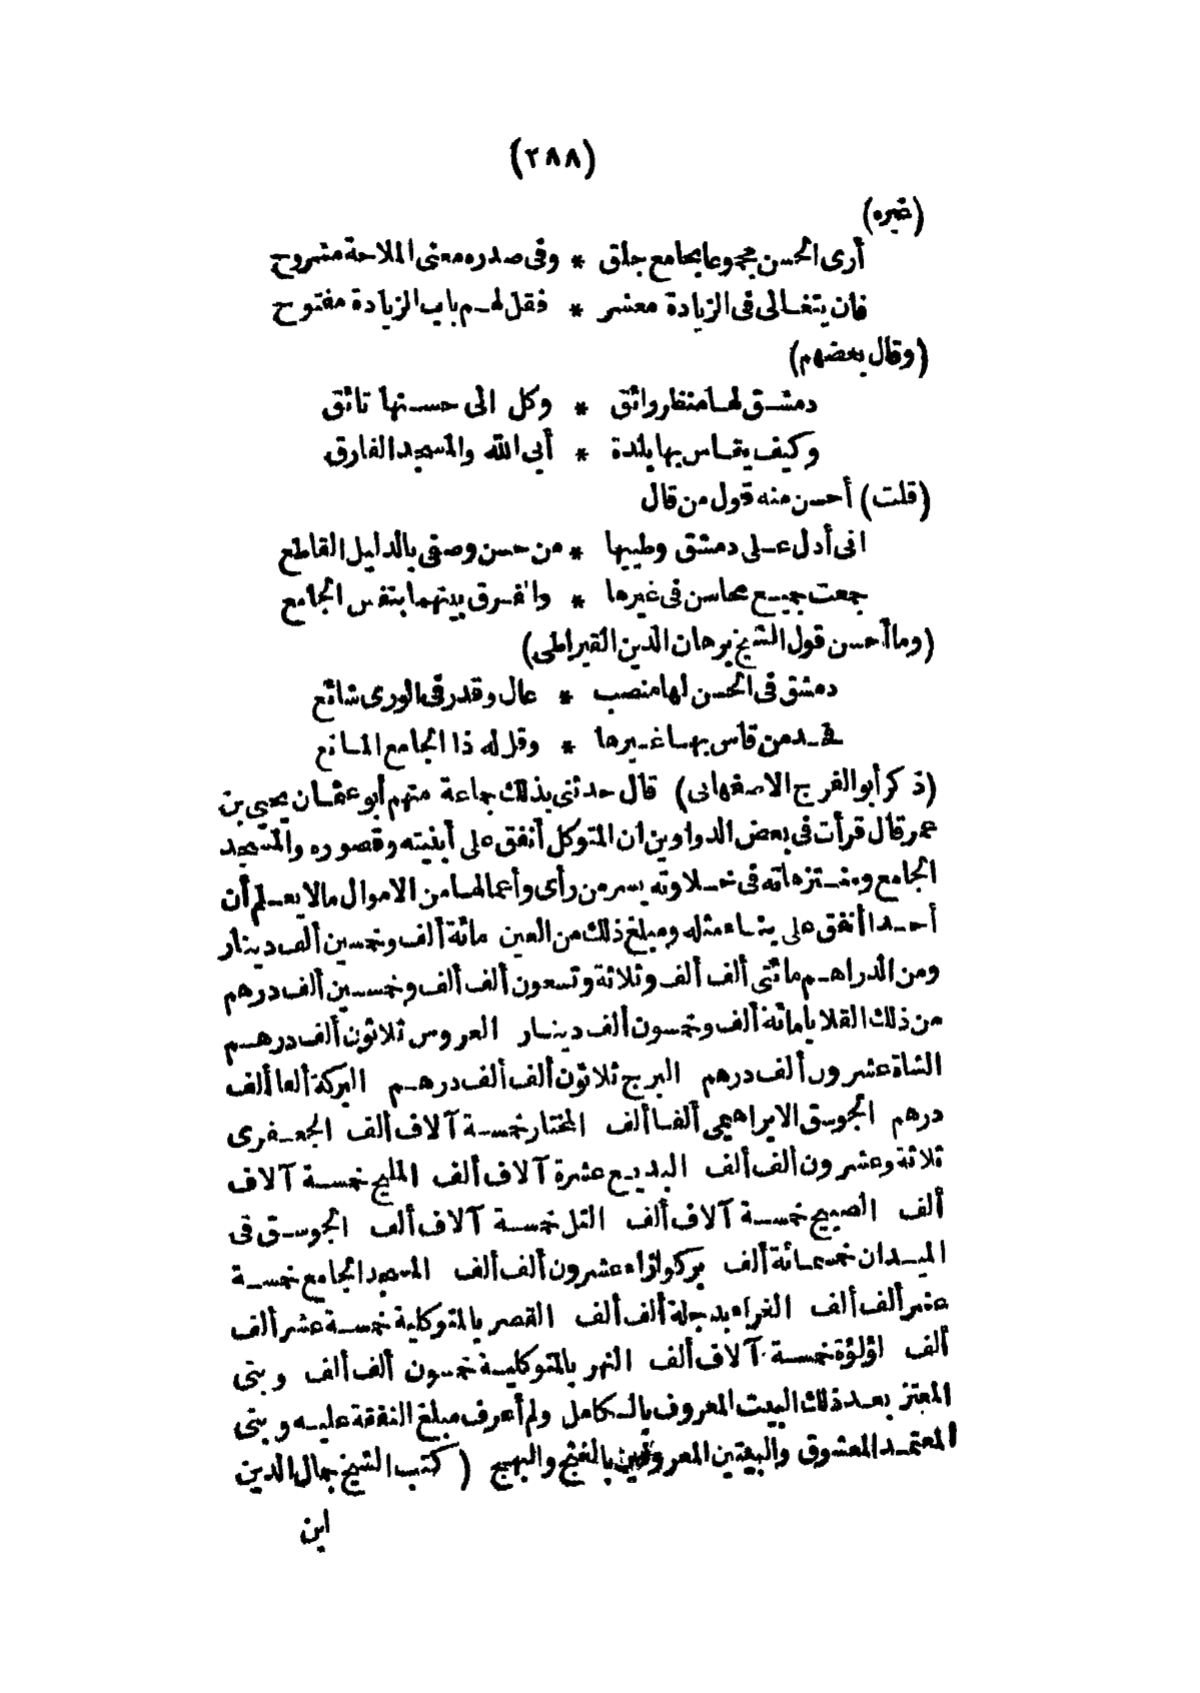 (٢٨٨)
(غيره)
أرى الحسن مجموعا بجامع جلق * وفى صدره معنى الملاحة مشروح
فان يتغالى فى الزيادة معشر * فقل لهم باب الزيادة مفتوح
(وقال بعضهم)
دمشق لها منظر رائق * وكل الى حسنها تائق
وكيف يقاس بها بلدة * أبى الله والمسجد الفارق
(قلت) أحسن منه قول من قال
انى أدل على دمشق وطيبها * من حسن وصفى بالدليل القاطع
جمعت جميع محاسن فى غيرها * والفرق بينهما بنفس الجامع
(وما أحسن قول الشيخ برهان الدين القيراطى)
دمشق فى الحسن لها منصب * عال وقدر فى الورى شائع
فحد من قاس بها غيرها * وقل له ذا الجامع المانع
(ذكر أبو الفرج الاصفهانى) قال حدثنى بذلك جماعة منهم أبو عثمان يحيى بن
عمر قال قرأت فى بعض الدواوين ان المتوكل أنفق على أبنيته وقصوره والمسجد
الجامع ومنتزهاته فى خلاوته بسر من رأى وأعمالها من الاموال مالا يعلم أن
أحدا أنفق على بناء مثله ومبلغ ذلك من العين مائة ألف وخمسين ألف دينار
ومن الدراهم مائتى ألف ألف وثلاثة وتسعون ألف ألف وخمسين ألف درهم
من ذلك القلايا مائة ألف وخمسون ألف دينار العروس ثلاثون ألف درهم
الشاة عشرون ألف درهم البرج ثلاثون ألف ألف درهم البركة ألفا ألف
درهم الجوسق الابراهيمى ألفا ألف المختار خمسة آلاف ألف الجعفرى
ثلاثة وعشرون ألف ألف البديع عشرة آلاف ألف المليح خمسة آلاف
ألف الصبيح خمسة آلاف ألف التل خمسة آلاف ألف الجوسق فى
الميدان خمسمائة ألف بركوازاء عشرون ألف ألف المسجد الجامع خمسة
عشر ألف ألف الغراء بدجلة ألف ألف القصر بالمتوكلية خمسة عشر ألف
ألف لؤلؤة خمسة آلاف ألف النهر بالمتوكلية خمسون ألف ألف وبنى
المعتز بعد ذلك البيت المعروف بالكامل ولم أعرف مبلغ النفقة عليه وبنى
المعتمد المعشوق والبيتين المعروفين بالغنج والبهج (كتب الشيخ جمال الدين
ابن